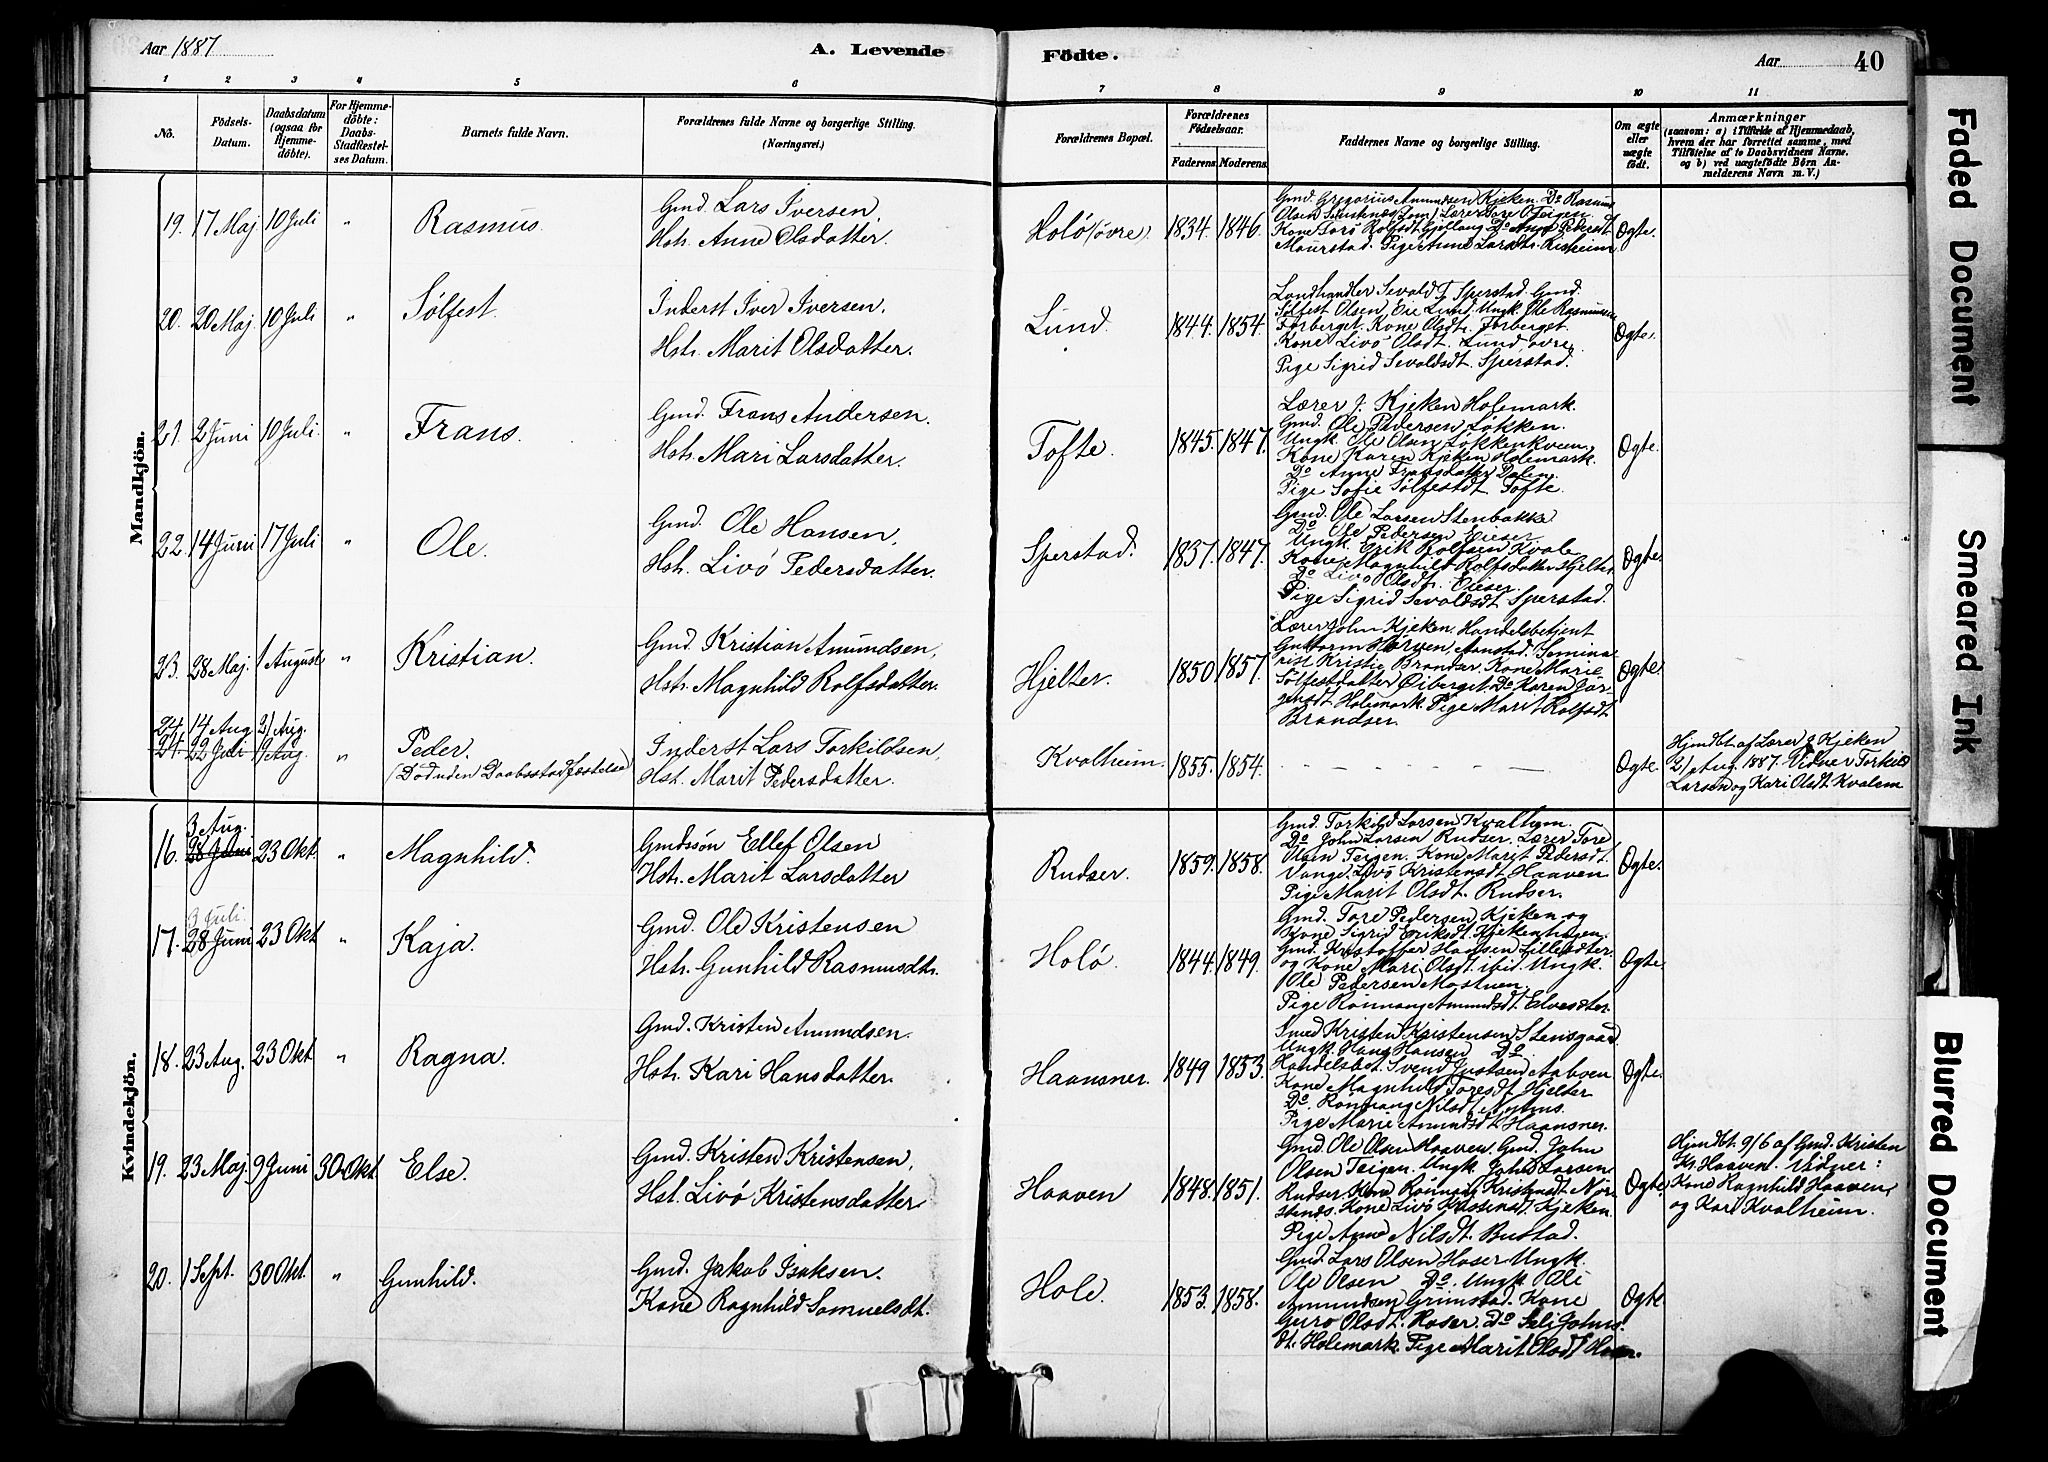 Aar 1887
A. Levende
Födte.
Aar
40
1 2 3 4 5 6 7 8 9 10 11
No.
Födsels-
Datum.
Daabsdatum
(ogsaa for
Hjemme-
döbte).
For Hjemme-
döbte:
Daabs-
Stadfæstel-
ses Datum.
Barnets fulde Navn.
Forældrenes fulde Navne og borgerlige Stilling.
(Næringsvei.)
Forældrenes Bopæl.
Forældrenes
Födselsaar.
Faderens. Moderens.
Faddernes Navne og borgerlige Stilling.
Om ægte
eller
uægte
födt.
Anmærkninger
(saasom: a) i Tilfælde af Hjemmedaab,
hvem der har forrettet samme, med
Tilföielse af to Daabsvidners Navne.
og b) ved uægtefödte Börn An-
melderens Navn m. V.)
Mandkjön.
19. 17 Maj 10 Juli " Rasmus
Gmd. Lars Iversen,
Hstr. Anne Olsdatter.
Holö (övre). 1834. 1846.
Gmd. Gregorius Amundsen Kjeken. Do Rasmus
Olsen Lærer Tore O. Teigen
Kone Rolfsdt. Do Anne Pedersdt
Maurstad. Pige Anne Larsdtr. Risheim
Ogte.
20. 20 Maj 10 Juli " Sölfest.
Inderst Iver Iversen,
Hstr. Marit Olsdatter.
Lund. 1844. 1854.
Landhandler Sevald T. Sperstad. Gmd.
Sölfest Olsen, Lund. Ungk. Ole Rasmussen
Forberget. Kone Olsdtr. Forberget.
Kone Livö Olsdt. Lund övre.
Pige Sigrid Sevaldsdt. Sperstad.
Ogte.
21. 2 Juni 10 Juli. " Frans.
Gmd. Frans Andersen.
Hstr. Mari Larsdatter.
Tofte. 1845. 1847.
Lærer J. Kjeken Holemark.
Gmd. Ole Pedersen Løkken.
Ungk. Ole Olsen Løkkenkvem
Kone Karen Kjeken Holemark.
Do Anne Fransdatter Dalen
Pige Sofie Sölfestdt Tofte.
Ogte.
22. 14 Juni 17 Juli " Ole.
Gmd. Ole Hansen,
Hstr. Livö Pedersdatter.
Sperstad. 1837. 1847.
Gmd. Ole Larsen Stenbakke
Do Ole Pedersen Eieser
Ungk. Erik Rolfsen Kvale
Kone Magnhild Rolfsdatter Hjelter
Do Livö Olsdtr. Eieser.
Pige Sigrid Sevaldsdt Sperstad.
Ogte.
23. 28 Maj. 1 August " Kristian.
Gmd. Kristian Amundsen,
Hstr. Magnhild Rolfsdatter.
Hjelter. 1850. 1857.
Lærer John Kjeken. Handelsbetjent
Guttorm Aanstad. Semina-
rist Kristie Brandser. Kone Marie
Sölfestdatter Öiberget. Do Karen Jör-
gensdt Holemark. Pige Marit Rolfsdt
Brandser.
Ogte.
24. 14 Aug 21 Aug.
24. 22 Juli Aug. " Peder.
(Död uden Daabsstadfæstelse)
Inderst Lars Torkildsen,
Hst. Marit Pedersdatter.
Kvalheim. 1855. 1854. – – – – –
Ogte.
Hjmdbt. af Lærer J Kjeken
21 Aug. 1887. Vidner Torkild
Larsen og Kari Olsdt. Kvalem
Kvindekjön.
3 Aug.
16. 28 Juni 23 Okt. " Magnhild.
Gmdssön Ellef Olsen
Hstr. Marit Larsdatter
Rudser. 1859. 1858.
Gmd. Torkild Larsen Kvalhem.
Do John Larsen Rudser. Lærer Tore
Olsen Teigen. Kone Marit Pedersdt.
Vange. Livö Kristensdt Haaven
Pige Marit Olsdt. Rudser.
Ogte.
3 Juli.
17. 28 Juni 23 Okt " Kaja.
Gmd. Ole Kristensen
Hstr. Gunhild Rasmusdtr.
Holö. 1844. 1849.
Gmd. Tore Pedersen Kjeken og
Kone Sigrid Eriksdt. Kjekenhagen.
Gmd. Kristoffer Hansen
og Kone Mari Olsdt. ibid. Ungk.
Ole Pedersen Mostuen.
Pige Rönnaug Amundsdt Elveseter.
Ogte.
18. 23 Aug. 23 Okt " Ragna.
Gmd. Kristen Amundsen.
Hstr. Kari Hansdatter.
Haansner. 1849 1853.
Smed Kristen Kristensen Stensgaad.
Ungk. Hans Hansen Do
Handelsbet. Svend Justsen Aaboen
Kone Magnhild Toresdt Hjelter
Do. Rönnaug Nilsdt
Pige Marie Amundsdt Haansner.
Ogte.
19. 23 Maj. 9 Juni 30 Okt. Else.
Gmd. Kristen Kristensen,
Hst. Livö Kristensdatter
Haaven 1848. 1851.
Gmd. Ole Olsen Haaven. Gmd. John
Olsen Teigen. Ungk. John Larsen
Rudser. Kone Rönnaug Kristensdt Nör-
stends. Kone Livö Kjeken.
Pige Anne Nilsdt. Bustad.
Ogte.
Hjmdbt. 9/6 af Gmd. Kristen
Kr. Haaven. Vidner:
Kone Ragnhild Haaven,
og Kari Kvalheim.
20. 1 Sept. 30 Okt. " Gunhild.
Gmd. Jakob Isaksen.
Kone Ragnhild Samuelsdt.
Hole. 1853. 1858.
Gmd. Lars Olsen Haser Ungk.
Ole Olsen Do. Ungk.
Amundsen Grimstad. Kone
Guro Olsdt. Haser. Do Johns
dt. Holemark. Pige Marit Olsdt
Ogte.
Faded Document
Smeared Ink
Blurred Document